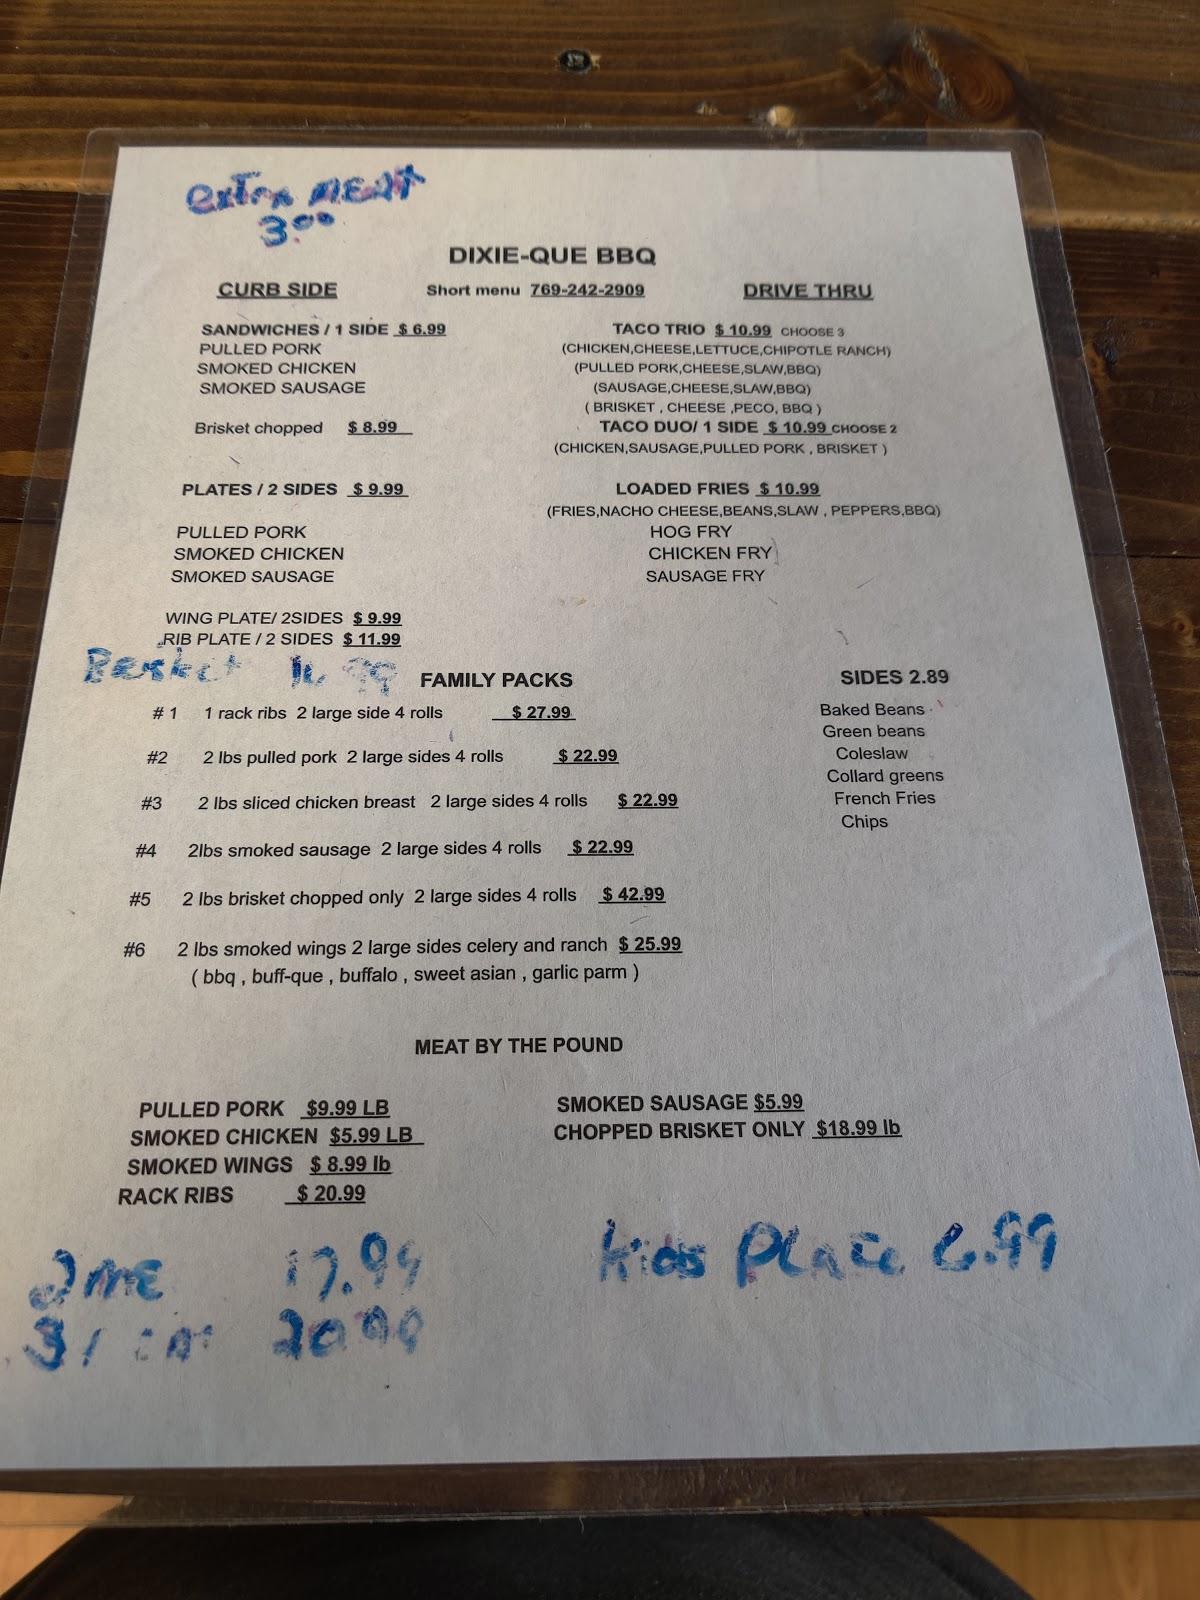 extra MEAT
3.00
DIXIE-QUE BBQ
CURB SIDE Short menu 769-242-2909 DRIVE THRU
SANDWICHES / 1 SIDE $ 6.99
PULLED PORK
SMOKED CHICKEN
SMOKED SAUSAGE
Brisket chopped $ 8.99
TACO TRIO $ 10.99 CHOOSE 3
(CHICKEN,CHEESE,LETTUCE,CHIPOTLE RANCH)
(PULLED PORK,CHEESE,SLAW,BBQ)
(SAUSAGE,CHEESE,SLAW,BBQ)
( BRISKET , CHEESE ,PECO, BBQ )
TACO DUO/ 1 SIDE $ 10.99 CHOOSE 2
(CHICKEN,SAUSAGE,PULLED PORK , BRISKET )
PLATES / 2 SIDES $ 9.99
PULLED PORK
SMOKED CHICKEN
SMOKED SAUSAGE
WING PLATE/ 2SIDES $ 9.99
RIB PLATE / 2 SIDES $ 11.99
LOADED FRIES $ 10.99
(FRIES,NACHO CHEESE,BEANS,SLAW , PEPPERS,BBQ)
HOG FRY
CHICKEN FRY
SAUSAGE FRY
FAMILY PACKS
# 1 1 rack ribs 2 large side 4 rolls $ 27.99
#2 2 lbs pulled pork 2 large sides 4 rolls $ 22.99
#3 2 lbs sliced chicken breast 2 large sides 4 rolls $ 22.99
#4 2lbs smoked sausage 2 large sides 4 rolls $ 22.99
#5 2 lbs brisket chopped only 2 large sides 4 rolls $ 42.99
#6 2 lbs smoked wings 2 large sides celery and ranch $ 25.99
( bbq , buff-que , buffalo , sweet asian , garlic parm )
SIDES 2.89
Baked Beans
Green beans
Coleslaw
Collard greens
French Fries
Chips
MEAT BY THE POUND
PULLED PORK $9.99 LB
SMOKED CHICKEN $5.99 LB
SMOKED WINGS $ 8.99 lb
RACK RIBS $ 20.99
SMOKED SAUSAGE $5.99
CHOPPED BRISKET ONLY $18.99 lb
2 17.99
3 20.99
kids Plate 6.99